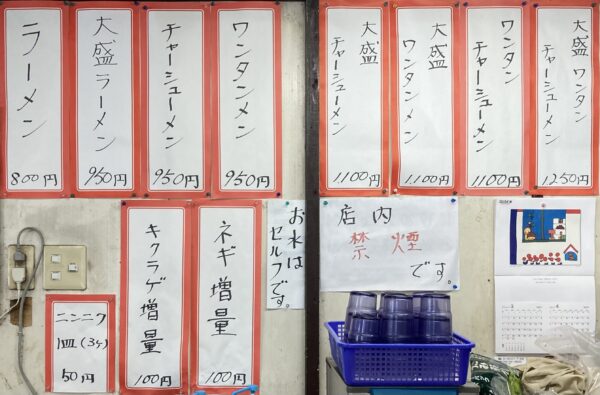 ラーメン
800円
大盛ラーメン
950円
チャーシューメン
950円
ワンタンメン
950円
大盛
チャーシューメン
1100円
大盛
ワンタンメン
1100円
ワンタン
チャーシューメン
1100円
大盛ワンタン
チャーシューメン
1250円
ニンニク
1皿(3ヶ)
50円
キクラゲ増量
100円
ネギ増量
100円
お水は
セルフです。
店内
禁煙
です。